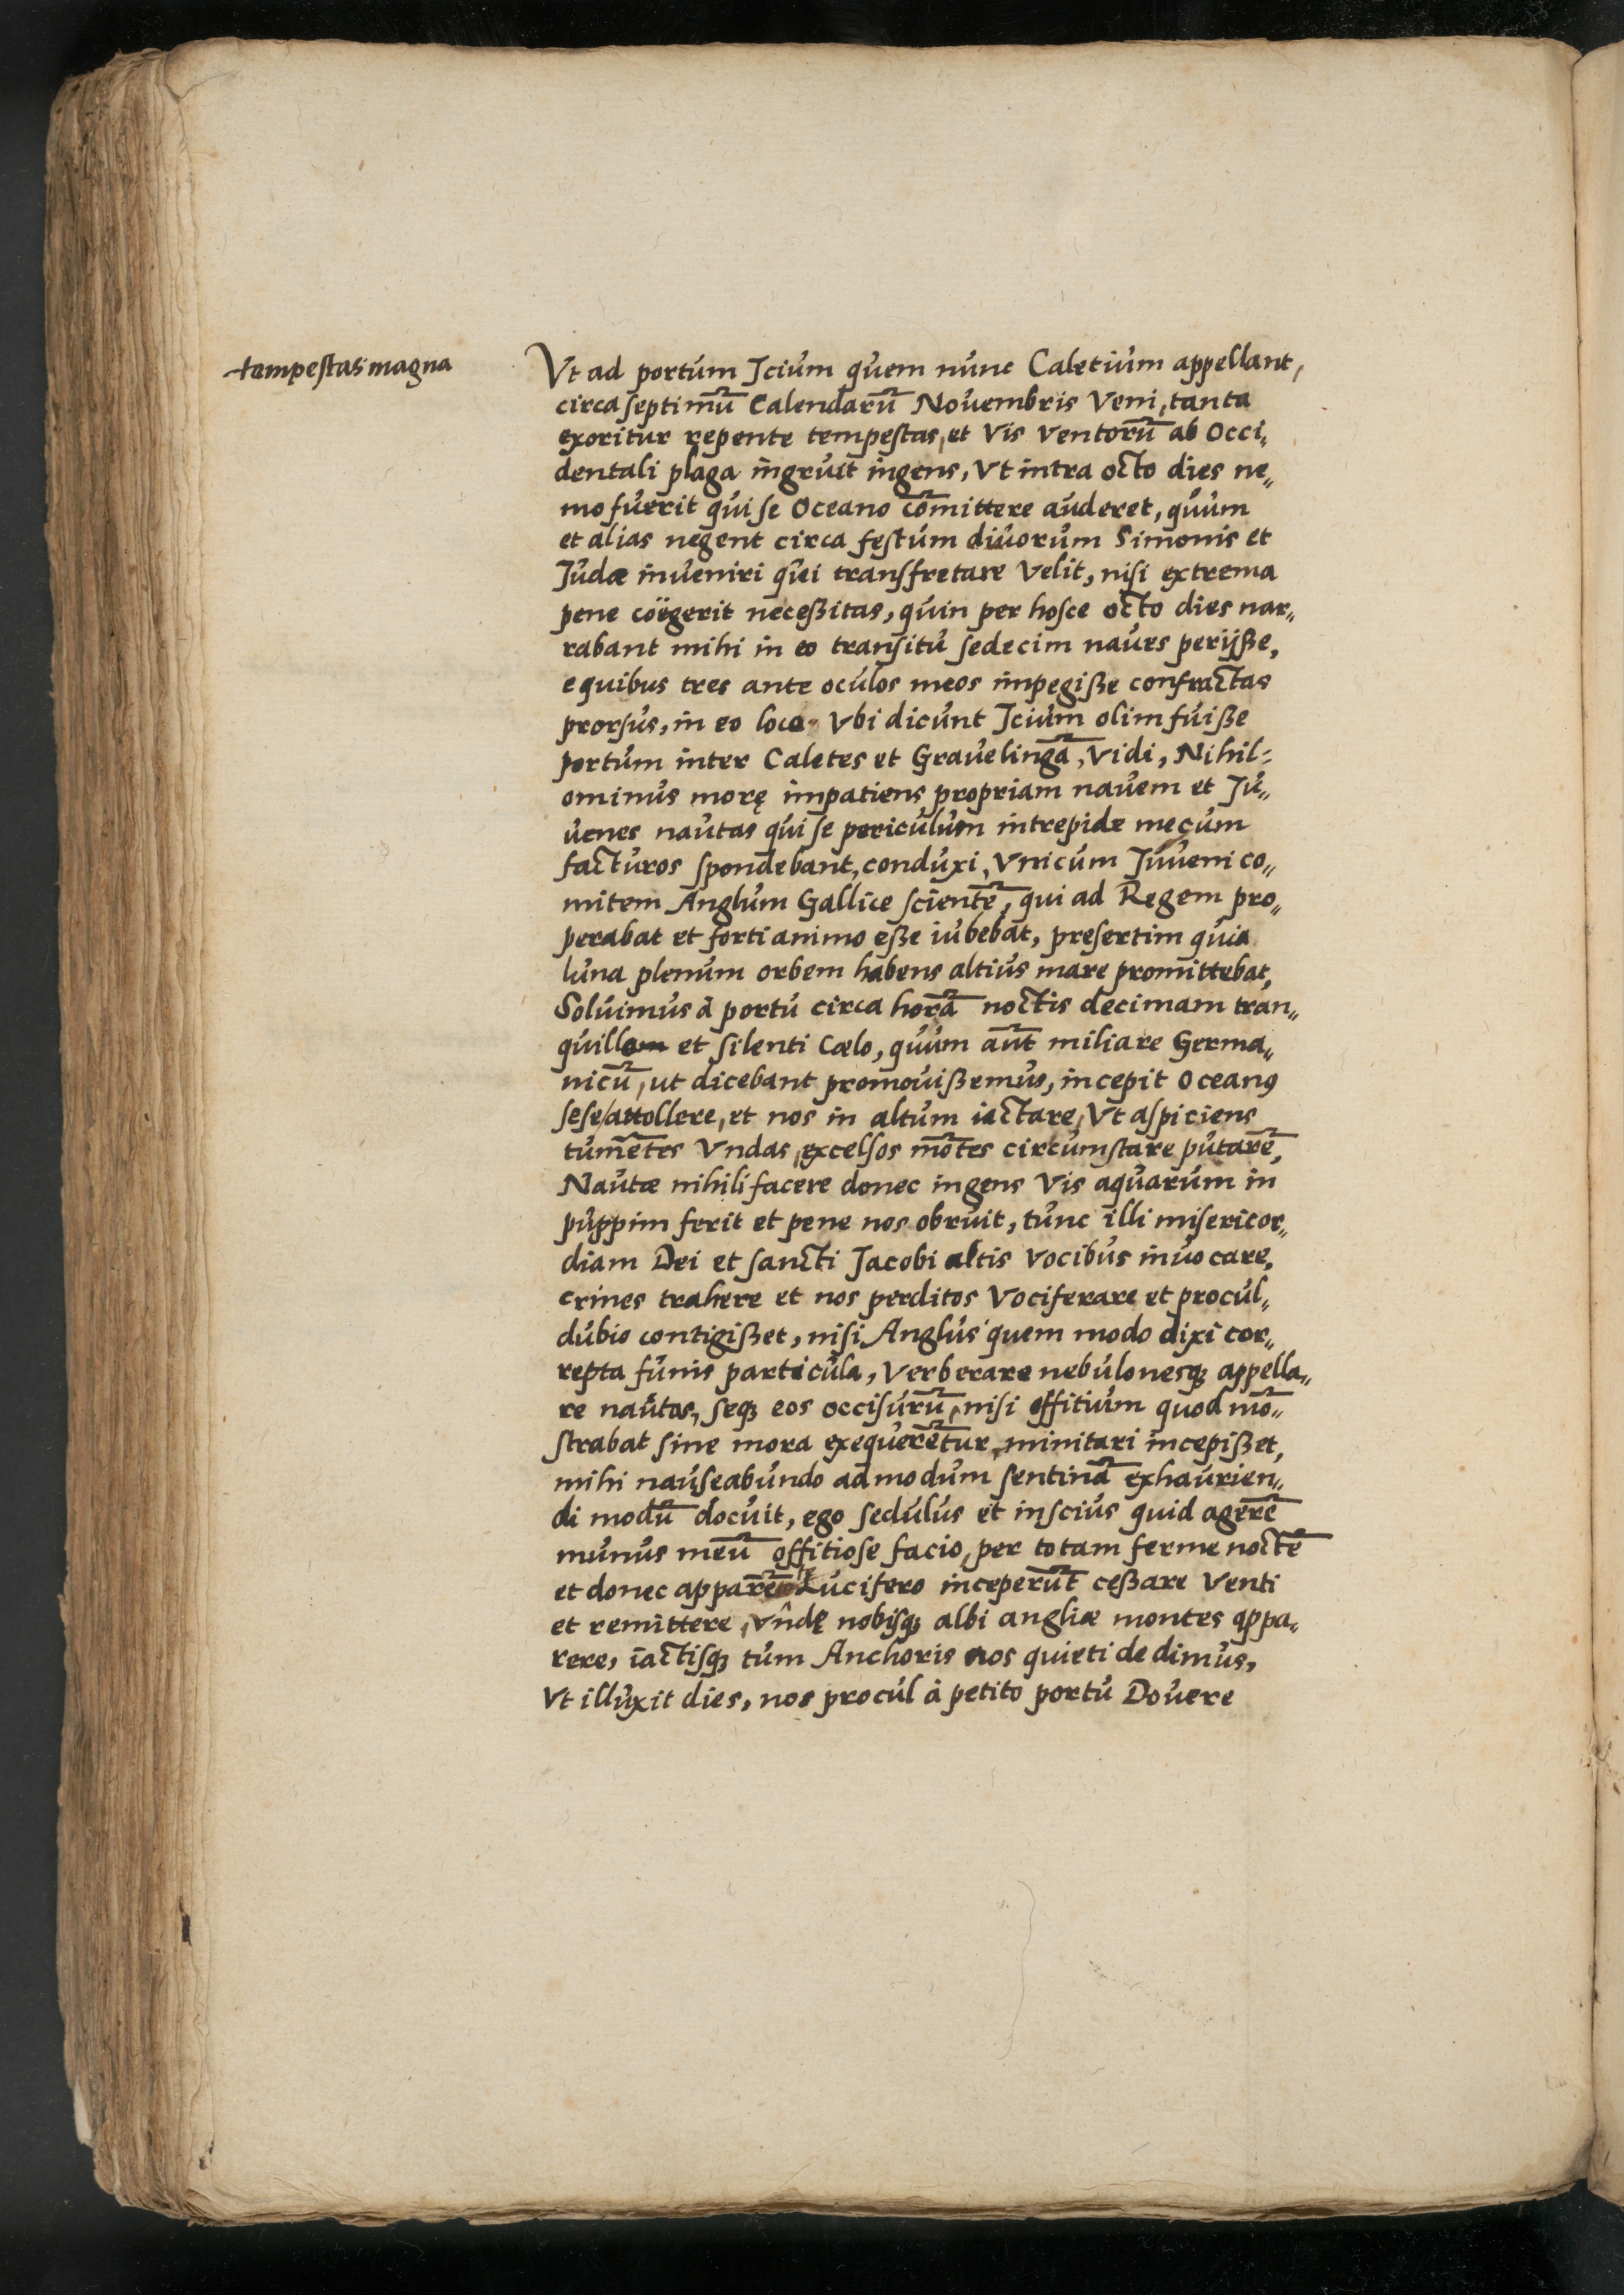 tempestas magna
Vt ad portum Icium quem nunc Caletium appellant,
circa septimū Calendarū Novembris Veni, tanta
exoritur repente tempestas, et Vis Ventorū ab Occi„
dentali plaga ingruit ingens, Vt intra octo dies ne„
mo fuerit qui se Oceano cōmittere auderet, quum
et alias negent circa festum divorum Simonis et
Judæ inveniri qui transfretare Velit, nisi extrema
pene coëgerit neceßitas, quin per hosce octo dies nar„
rabant mihi in eo transitu sedecim naves perijße,
e quibus tres ante oculos meos impegiße confractas
prorsus, in eo loco Vbi dicunt Icium olim fuiße
portum inter Caletes et Gravelingā, Vidi, Nihil⸗
ominus morę impatiens propriam navem et Ju„
venes nautas qui se periculum intrepide mecum
facturos spondebant, conduxi, Vnicum Juveni co„
mitem Anglum Gallice scientē, qui ad Regem pro„
perabat et forti animo eße iubebat, presertim quia
luna plenum orbem habens altius mare promittebat,
Solvimus à portu circa horā noctis decimam tran„
quillam et silenti Cælo, quum aūt miliare Germa„
nicū, ut dicebant promovißemus, incepit Oceanꝰ
sese/attollere, et nos in altum iactare, Vt aspiciens
tumētes Vndas, excelsos mōtes circumstare putarē,
Nautæ nihili facere donec ingens Vis aquarum in
puppim ferit et pene nos obruit, tunc illi misericor„
diam Dei et sancti Jacobi altis Vocibus invocare,
crines trahere et nos perditos Vociferare et procul„
dubio contigißet, nisi Anglus quem modo dixi cor„
repta funis particula, Verberare nebulonesq; appella„
re nautas, seq; eos occisurū, nisi offitium quod mō„
strabat sine mora exequerētur, minitari incepißet,
mihi nauseabundo admodum sentinā exhaurien„
di modū docuit, ego sedulus et inscius quid agerē
munus meū offitiose facio, per totam ferme noctē
et donec apparēte Lucifero inceperūt ceßare Venti
et remittere, Vndę nobisq; albi angliæ montes appa„
rere, iactisq; tum Anchoris nos quieti dedimus,
Vt illuxit dies, nos procul à petito portu Dovere